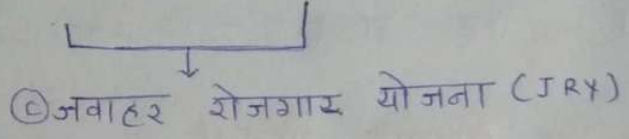 ©जवाहर रोजगार योजना (JRY)